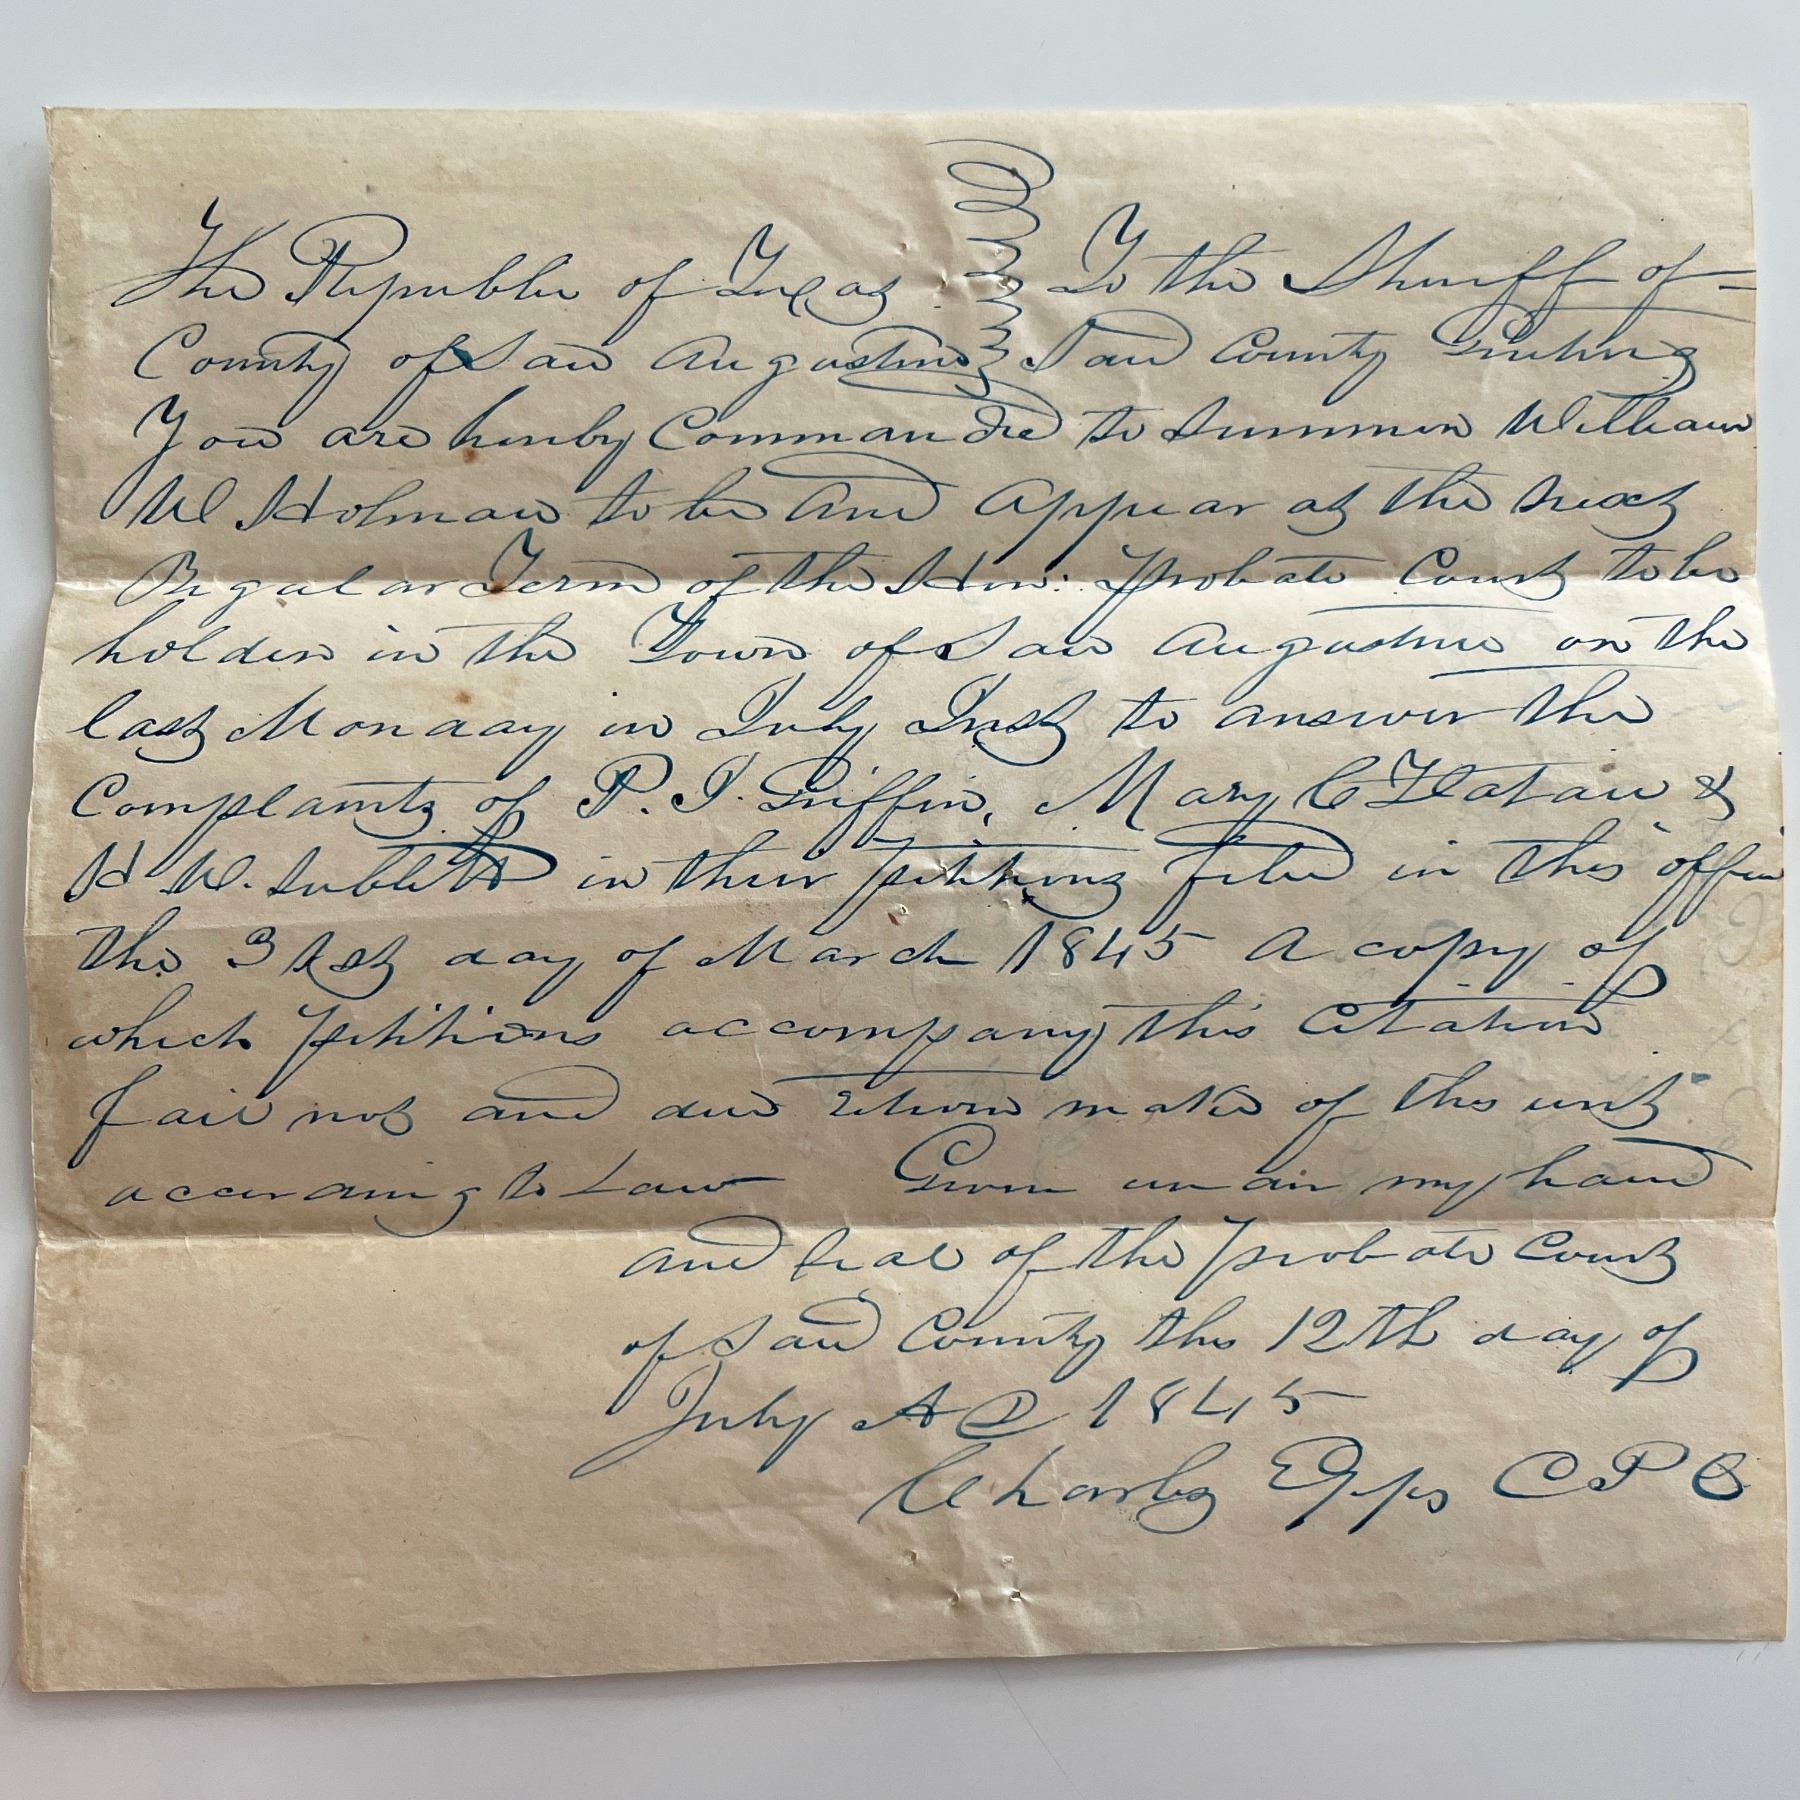 The Republic of Texas To the Sheriff of
County of San Augustine Said County Greeting
You are hereby Commanded to Summon William
W Holman to be and appear at the next
Regular Term of the Hon: Probate Court to be
holden in the Town of San Augustine on the
last Monday in July Inst to answer the
Complaints of P. J. Griffin, Mary C Flatau &
H W. Sublett in their petitions filed in this office
the 31st day of March 1845 A copy of
which petitions accompany this Citation
fail not and due return make of this writ
according to Law Given under my hand
and seal of the Probate Court
of said County this 12th day of
July AD 1845
Charles Epps C P C